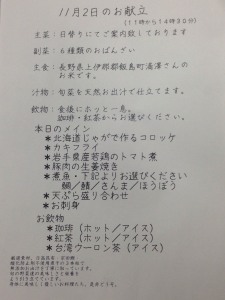 11月2日のお献立
(11時から14時30分)
主菜:日替りにてご案内致しております
副菜:6種類のおばんざい
主食:長野県上伊那郡飯島町湯澤さんの
お米です。
汁物:旬菜を天然お出汁で仕立てます。
飲物:食後にホッと一息。
珈琲・紅茶からお選びください。
本日のメイン
*北海道じゃがで作るコロッケ
*カキフライ
*岩手県産若鶏のトマト煮
*豚肉の生姜焼き
*煮魚・下記よりお選びください
鯛/鯖/さんま/ほうぼう
*天ぷら盛り合わせ
*お刺身
お飲物
*珈琲(ホット/アイス)
*紅茶(ホット/アイス)
*台湾ウーロン茶(アイス)